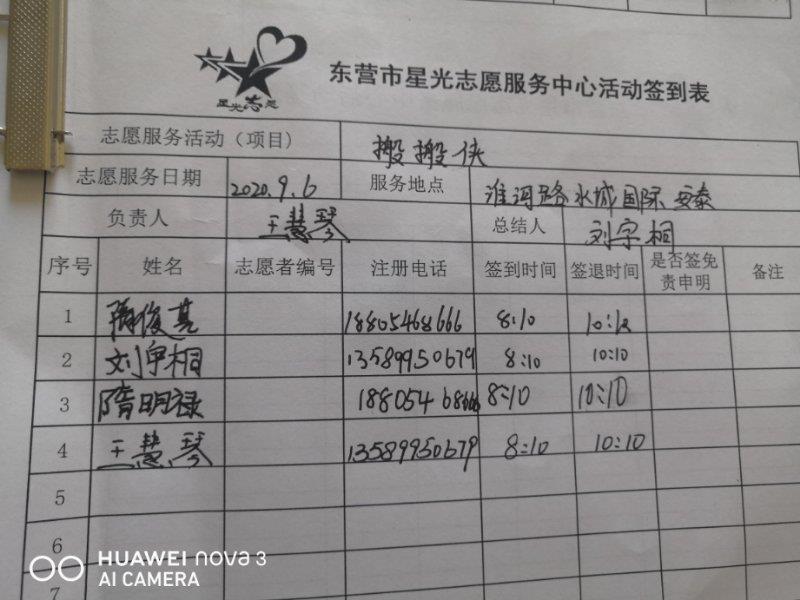 星光志愿
东营市星光志愿服务中心活动签到表
志愿服务活动（项目） 搬搬侠
志愿服务日期 2020.9.6 服务地点 淮河路水城国际 安泰
负责人 王慧琴 总结人 刘宇桐
序号 姓名 志愿者编号 注册电话 签到时间 签退时间 是否签免责申明 备注
1 隋俊 18805468666 8:10 10:10
2 刘宇桐 13589950679 8:10 10:10
3 隋明禄 18805468666 8:10 10:10
4 王慧琴 13589950679 8:10 10:10
5
6
7
HUAWEI nova 3
AI CAMERA